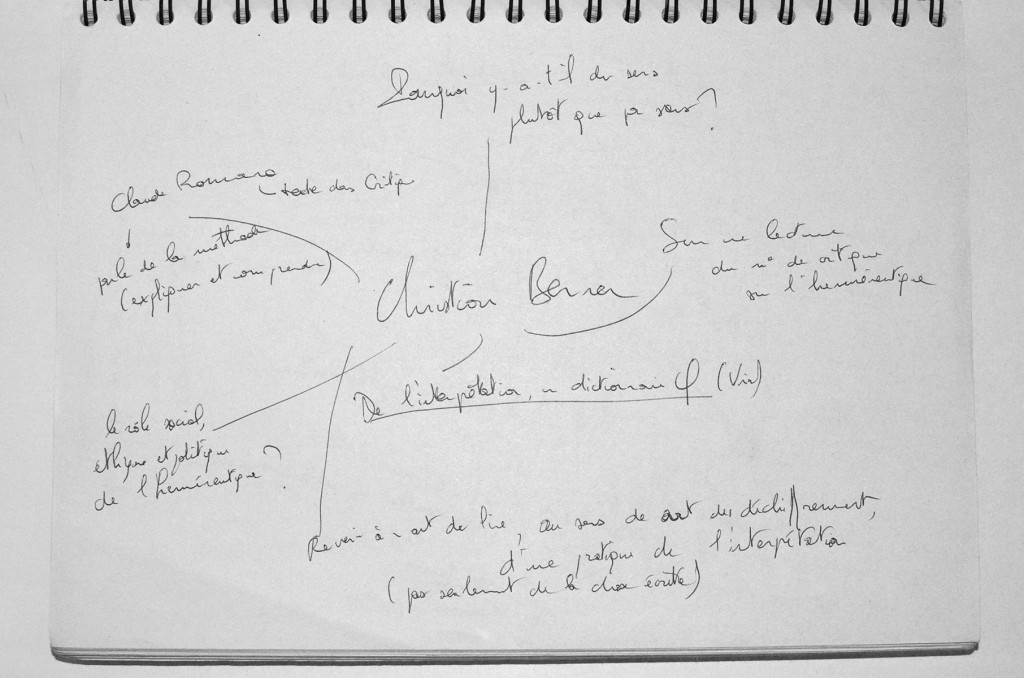 Pourquoi y-a-t'il du sens
plutôt que pas sens ?
Claude Romano
texte dans Critique
parle de la méthode
(expliquer et comprendre)
Sur une lecture
du n° de critique
sur l'herméneutique
Christian Berner
De l'interprétation, un dictionnaire φ (Vrin)
le rôle social,
éthique et politique
de l'herméneutique ?
Revenir à art de lire, au sens de art des déchiffrement,
d'une pratique de l'interprétation
(pas seulement de la chose écrite)